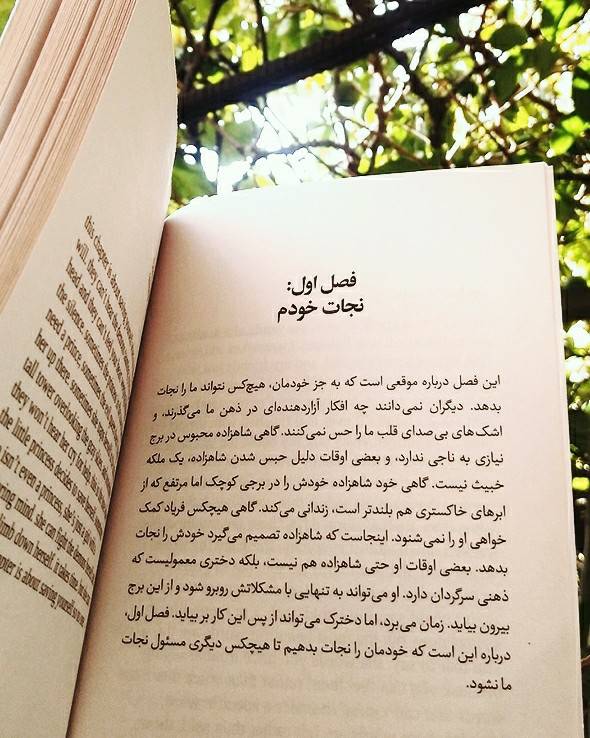 فصل اول:
نجات خودم
این فصل درباره موقعی است که به جز خودمان، هیچ‌کس نتواند ما را نجات
بدهد. دیگران نمی‌دانند چه افکار آزاردهنده‌ای در ذهن ما می‌گذرند، و
اشک‌های بی‌صدای قلب ما را حس نمی‌کنند. گاهی شاهزاده محبوس در برج
نیازی به ناجی ندارد، و بعضی اوقات دلیل حبس شدن شاهزاده، یک ملکه
خبیث نیست. گاهی خود شاهزاده خودش را در برجی کوچک اما مرتفع که از
ابرهای خاکستری هم بلندتر است، زندانی می‌کند. گاهی هیچکس فریاد کمک
خواهی او را نمی‌شنود. اینجاست که شاهزاده تصمیم می‌گیرد خودش را نجات
بدهد. بعضی اوقات او حتی شاهزاده هم نیست، بلکه دختری معمولیست که
ذهنی سرگردان دارد. او می‌تواند به تنهایی با مشکلاتش روبرو شود و از این برج
بیرون بیاید. زمان می‌برد، اما دخترک می‌تواند از پس این کار بر بیاید. فصل اول،
درباره این است که خودمان را نجات بدهیم تا هیچکس دیگری مسئول نجات
ما نشود.
this chapter is about
will. they can't hear the
head and they can't feel
the silence. sometimes the
need a prince. sometimes the evil
her up there. sometimes she
tall tower overlooking the grey
they won't hear her cry for help.
the little princess decides to save herself.
isn't even a princess. she's just a girl
ring mind. she can fight the
climb down herself. it takes time, but
chapter is about saving yourself so no one